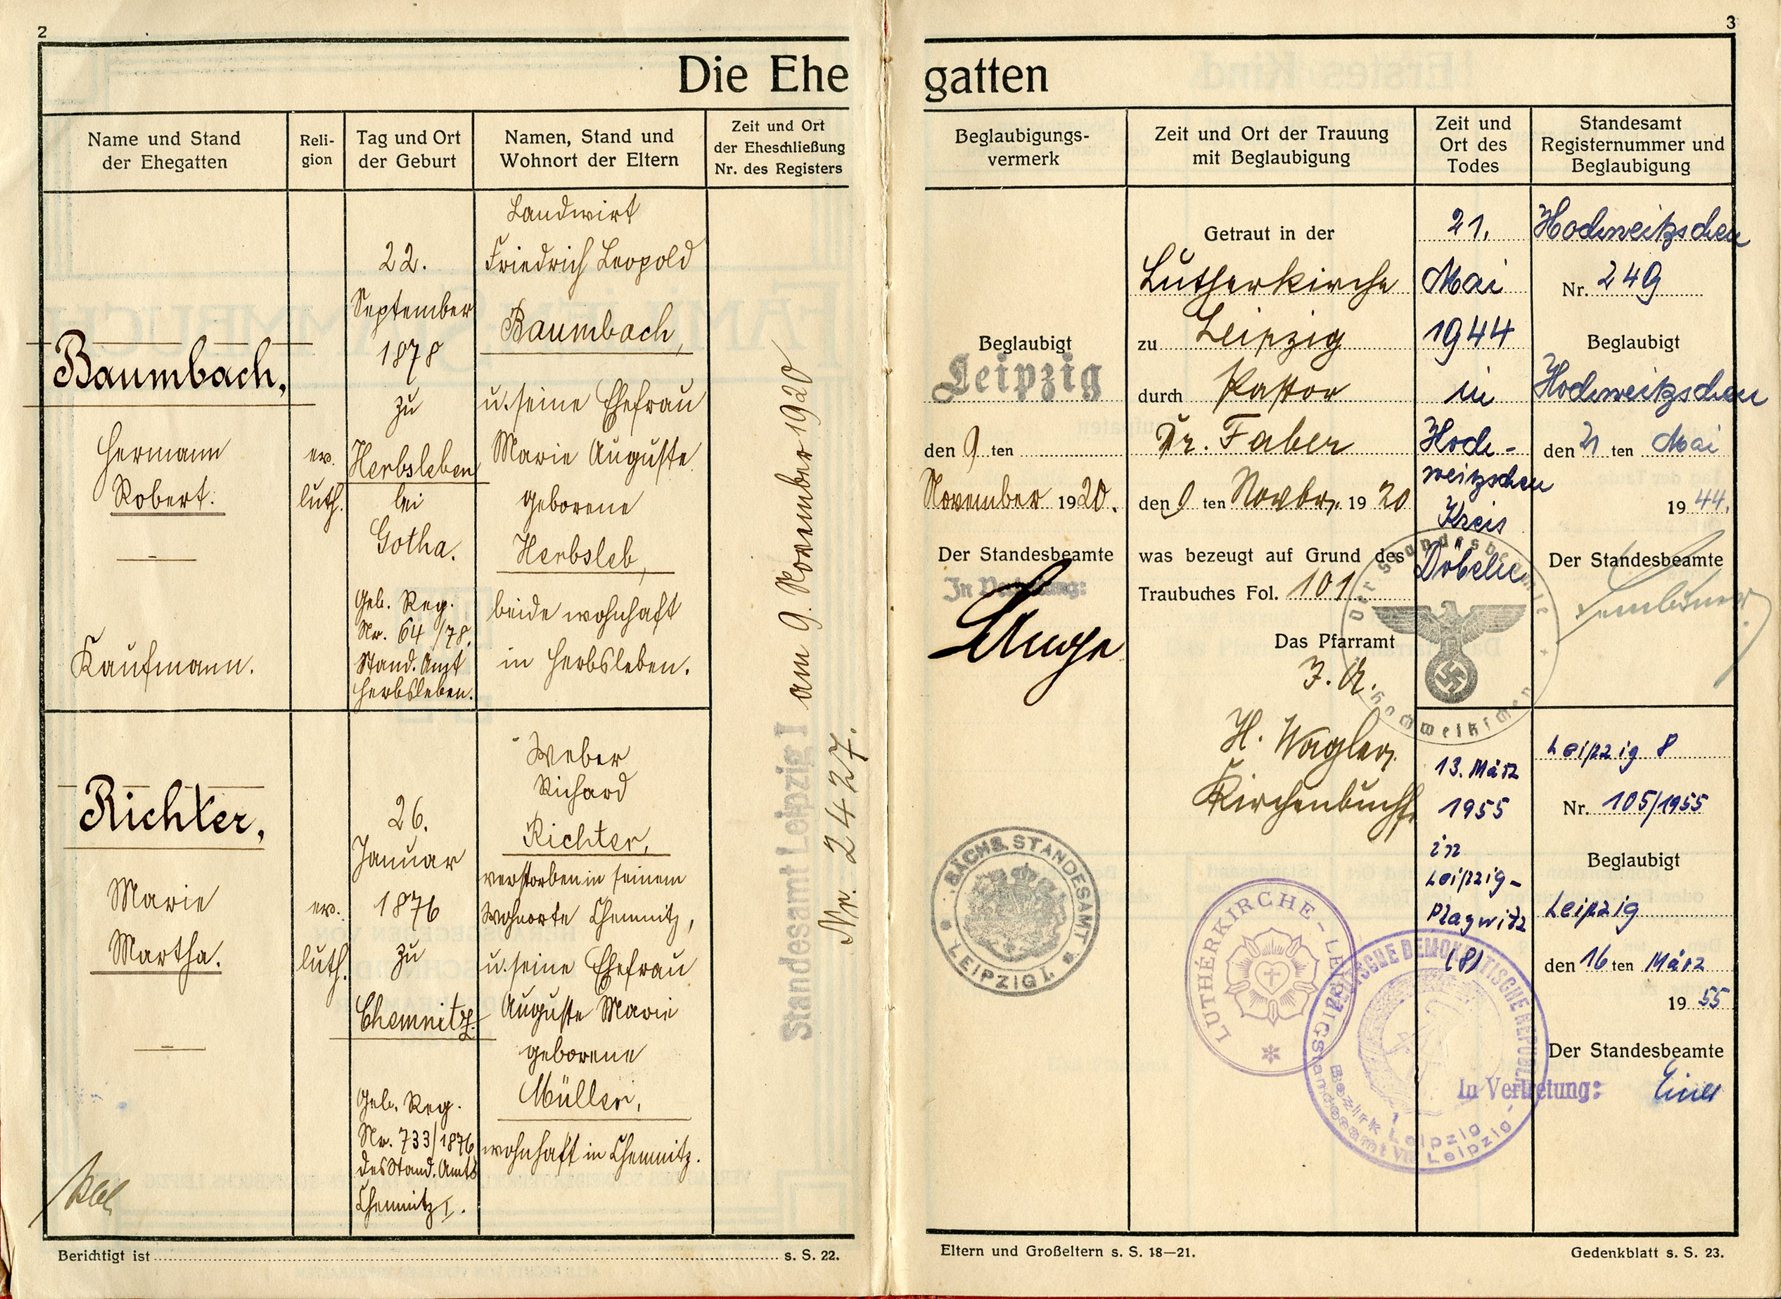 2
Die Ehe
Name und Stand
der Ehegatten
Reli-
gion
Tag und Ort
der Geburt
Namen, Stand und
Wohnort der Eltern
Zeit und Ort
der Eheschließung
Nr. des Registers
Baumbach,
Hermann
Robert.
Kaufmann.
ev.
luth.
22.
September
1878
zu
Herbsleben
bei
Gotha.
Geb. Reg.
Nr. 64/78.
Stand. Amt
Herbsleben.
Landwirt
Friedrich Leopold
Baumbach,
u. seine Ehefrau
Marie Auguste
geborene
Herbsleb,
beide wohnhaft
in Herbsleben.
Standesamt Leipzig I am 9. November 1920
Nr. 2427.
Richter,
Marie
Martha.
ev.
luth.
26.
Januar
1876
zu
Chemnitz.
Geb. Reg.
Nr. 733/1876
des Stand. Amts
Chemnitz I.
Weber
Richard
Richter,
verstorben in seinem
Wohnorte Chemnitz,
u. seine Ehefrau
Auguste Marie
geborene
Müller,
wohnhaft in Chemnitz.
Berichtigt ist
s. S. 22.
3
gatten
Beglaubigungs-
vermerk
Zeit und Ort der Trauung
mit Beglaubigung
Zeit und
Ort des
Todes
Standesamt
Registernummer und
Beglaubigung
Beglaubigt
Leipzig
den 9 ten
November 1920.
Der Standesbeamte
In Vertretung:
SÄCHS. STANDESAMT
LEIPZIG I.
Getraut in der
Lutherkirche
zu Leipzig
durch Pastor
Dr. Faber
den 9 ten Novbr. 1920
was bezeugt auf Grund des
Traubuches Fol. 101
Das Pfarramt
J. A.
H. Wagler,
Kirchenbuchf.
LUTHERKIRCHE - LEIPZIG
21.
Mai
1944
in
Hoch-
weitzschen
Kreis
Döbeln
Der Standesbeamte
Hochweitzschen
Nr. 249
Beglaubigt
Hochweitzschen
den 21 ten Mai
1944.
Der Standesbeamte
Hochweitzschen
13. März
1955
in
Leipzig-
Plagwitz
(8)
Leipzig 8
Nr. 105/1955
Beglaubigt
Leipzig
den 16 ten März
1955
Der Standesbeamte
In Vertretung:
DEUTSCHE DEMOKRATISCHE REPUBLIK
Bezirk Leipzig
Standesamt VIII Leipzig
Eltern und Großeltern s. S. 18—21.
Gedenkblatt s. S. 23.